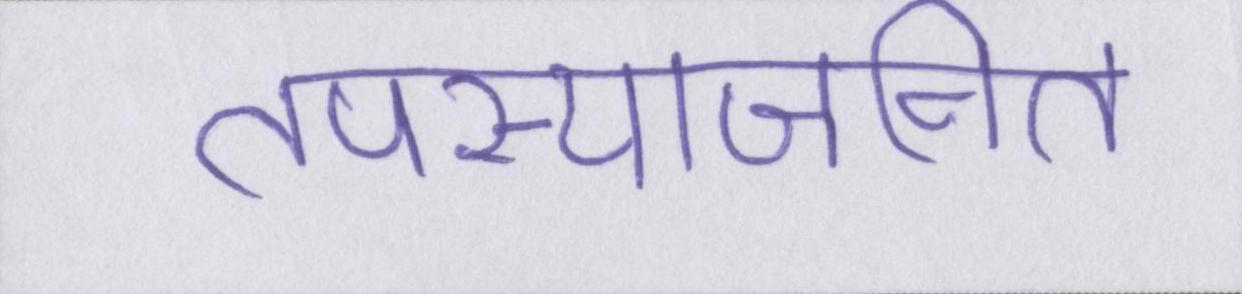 तपस्याजनित